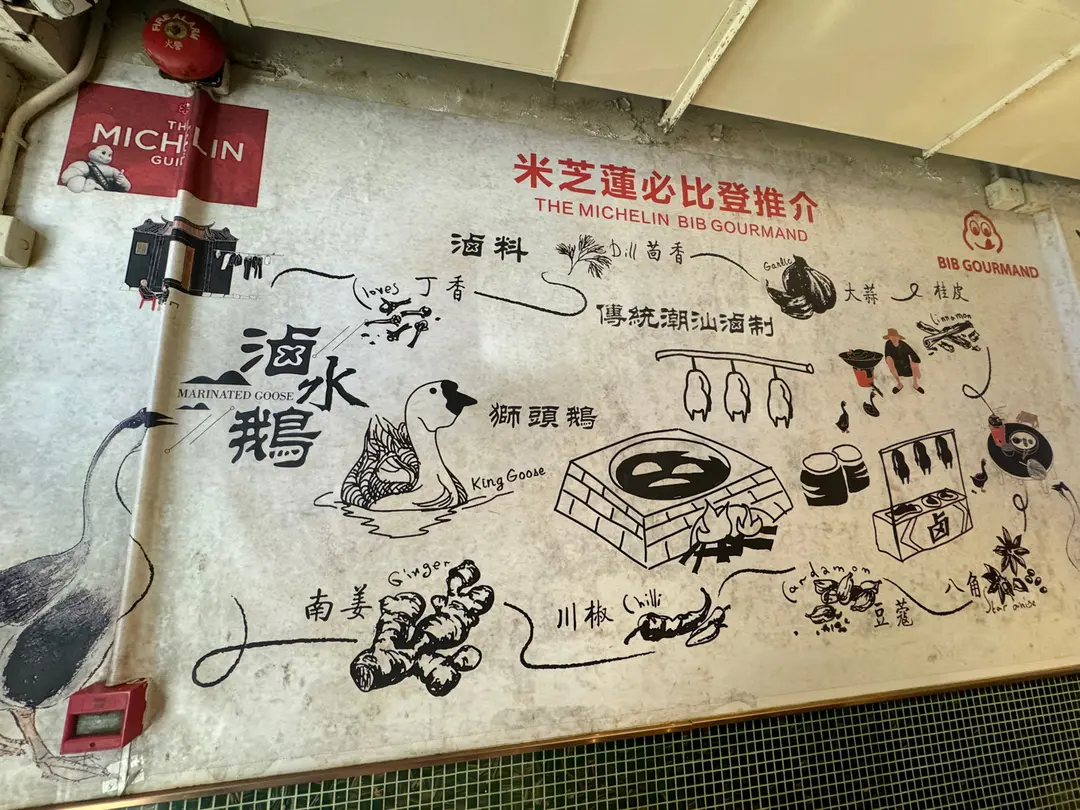 FIRE ALARM
火警
THE
MICHELIN
GUIDE
米芝蓮必比登推介
THE MICHELIN BIB GOURMAND
BIB GOURMAND
滷料
Dill 茴香
Garlic
大蒜
桂皮
Cinnamon
Cloves 丁香
傳統潮汕滷制
滷水鵝
MARINATED GOOSE
獅頭鵝
King Goose
卤
南姜 Ginger
川椒 Chilli
Cardamon
豆蔻
八角
Star anise